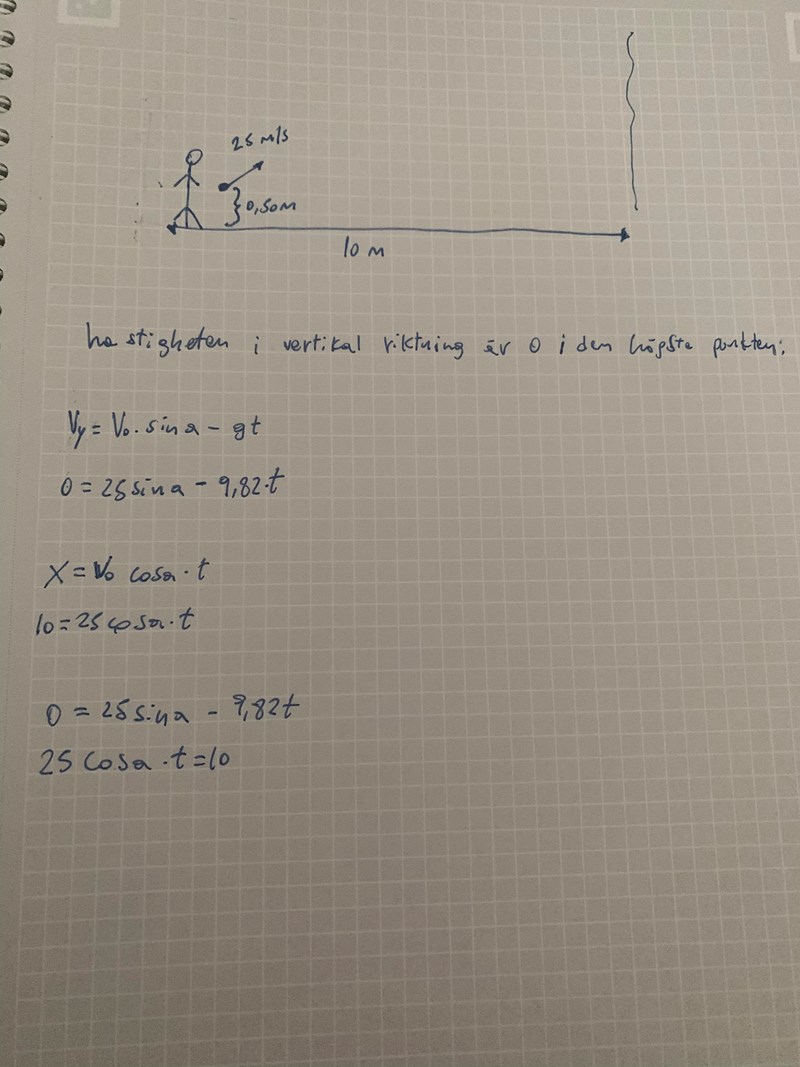 25 m/s
0,50m
10 m
hastigheten i vertikal riktning är 0 i den högsta punkten:
Vy = V₀ · sin a - gt
0 = 25 sin a - 9,82·t
X = V₀ cos a · t
10 = 25 cos a · t
0 = 25 sin a - 9,82t
25 cos a · t = 10